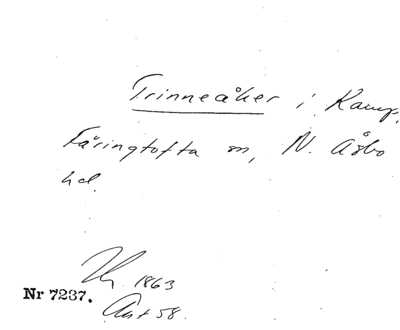 Trinneåker i Kamp,
Färingtofta sn, N. Åsbo
hd.
1863
Nr 7237.
Ant 58.